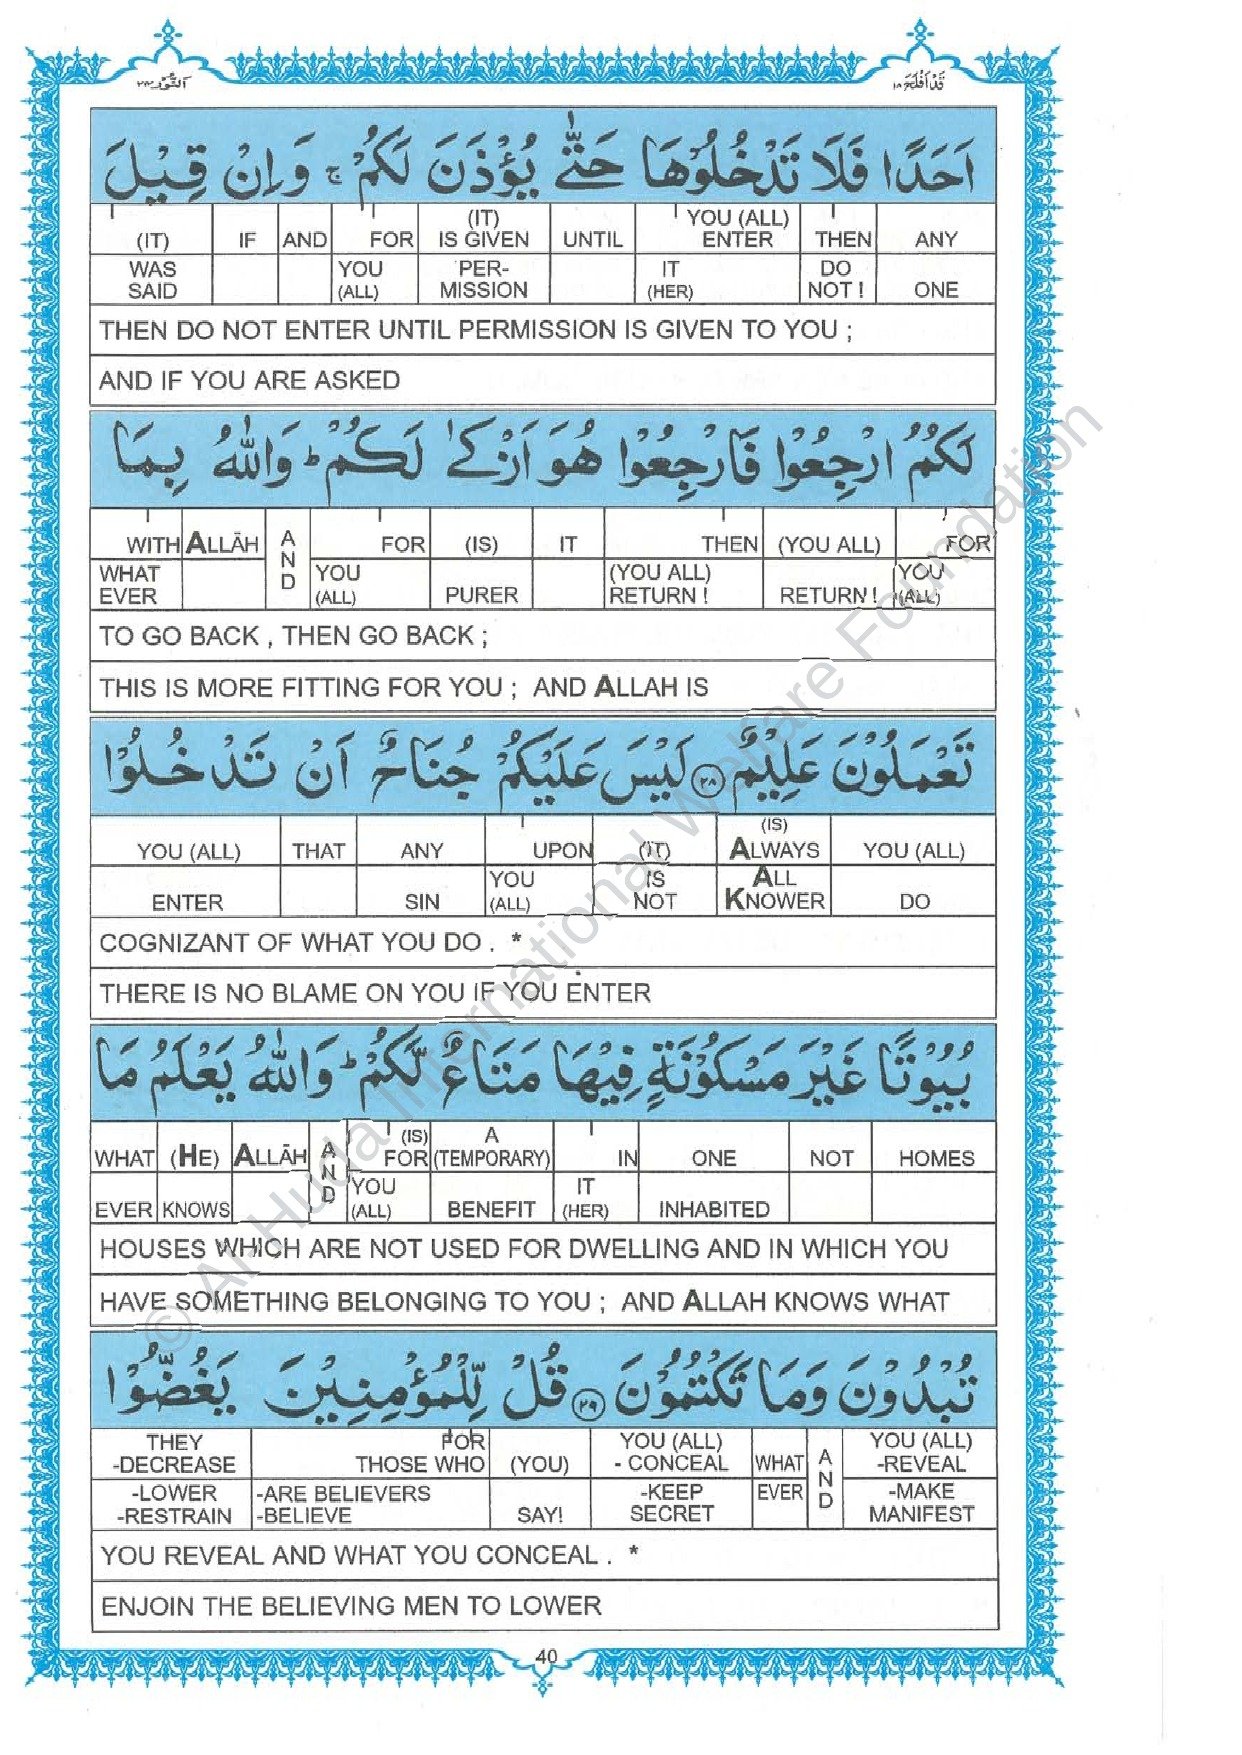 قَدْ اَفْلَحَ ١٨ اَلنُّوْر ٢٤
اَحَدًا فَلَا تَدْخُلُوْهَا حَتّٰى يُؤْذَنَ لَكُمْ ۚ وَاِنْ قِيْلَ
(IT) IF AND FOR (IT) IS GIVEN UNTIL YOU (ALL) ENTER THEN ANY
WAS SAID YOU (ALL) PER- MISSION IT (HER) DO NOT ! ONE
THEN DO NOT ENTER UNTIL PERMISSION IS GIVEN TO YOU ;
AND IF YOU ARE ASKED
لَكُمُ ارْجِعُوْا فَارْجِعُوْا هُوَ اَزْكٰى لَكُمْ ؕ وَاللّٰهُ بِمَا
WITH ALLĀH AND FOR (IS) IT THEN (YOU ALL) FOR
WHAT EVER YOU (ALL) PURER (YOU ALL) RETURN ! RETURN ! YOU (ALL)
TO GO BACK , THEN GO BACK ;
THIS IS MORE FITTING FOR YOU ; AND ALLAH IS
تَعْمَلُوْنَ عَلِيْمٌ ﴿٢٨﴾ لَيْسَ عَلَيْكُمْ جُنَاحٌ اَنْ تَدْخُلُوْا
YOU (ALL) THAT ANY UPON (IT) (IS) ALWAYS YOU (ALL)
ENTER SIN YOU (ALL) IS NOT ALL KNOWER DO
COGNIZANT OF WHAT YOU DO . *
THERE IS NO BLAME ON YOU IF YOU ENTER
بُيُوْتًا غَيْرَ مَسْكُوْنَةٍ فِيْهَا مَتَاعٌ لَّكُمْ ؕ وَاللّٰهُ يَعْلَمُ مَا
WHAT (HE) ALLĀH AND (IS) FOR A (TEMPORARY) IN ONE NOT HOMES
EVER KNOWS YOU (ALL) BENEFIT IT (HER) INHABITED
HOUSES WHICH ARE NOT USED FOR DWELLING AND IN WHICH YOU
HAVE SOMETHING BELONGING TO YOU ; AND ALLAH KNOWS WHAT
تُبْدُوْنَ وَمَا تَكْتُمُوْنَ ﴿٢٩﴾ قُلْ لِّلْمُؤْمِنِيْنَ يَغُضُّوْا
THEY -DECREASE FOR THOSE WHO (YOU) YOU (ALL) - CONCEAL WHAT AND YOU (ALL) -REVEAL
-LOWER -RESTRAIN -ARE BELIEVERS -BELIEVE SAY! -KEEP SECRET EVER -MAKE MANIFEST
YOU REVEAL AND WHAT YOU CONCEAL . *
ENJOIN THE BELIEVING MEN TO LOWER
40
© Al-Huda International Welfare Foundation